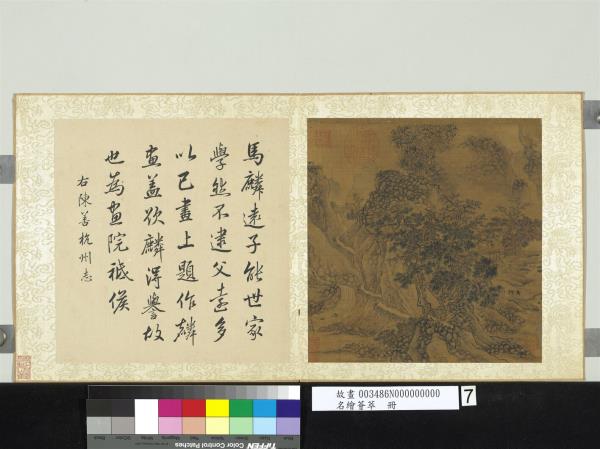 馬麟遠子能世家
學然不逮父遠多
以己畫上題作麟
畫蓋欲麟得譽故
也為畫院祗候
右陳善杭州志
故畫 003486N000000000
名繪薈萃 冊
7
TIFFEN Color Control Patches